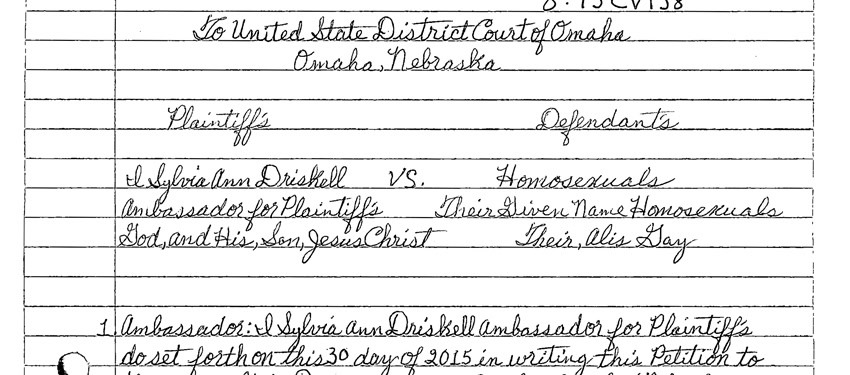 8:15CV158
To United State District Court of Omaha
Omaha, Nebraska
Plaintiff's Defendant's
I Sylvia Ann Driskell VS. Homosexuals
Ambassador for Plaintiff's Their Given Name Homosexuals
God, and His, Son, Jesus Christ Their, Alis Gay
1. Ambassador: I Sylvia Ann Driskell Ambassador for Plaintiff's
do set forth on this 30 day of 2015 in writing this Petition to